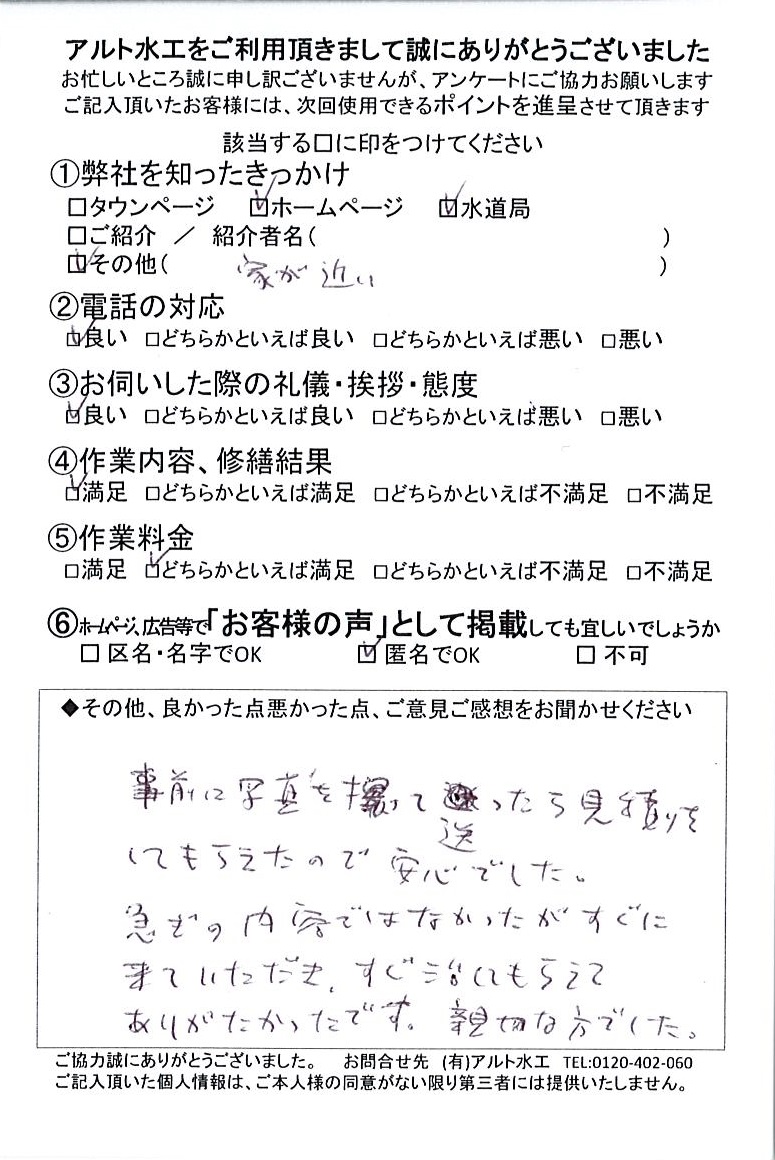 アルト水工をご利用頂きまして誠にありがとうございました
お忙しいところ誠に申し訳ございませんが、アンケートにご協力お願いします
ご記入頂いたお客様には、次回使用できるポイントを進呈させて頂きます
該当する□に印をつけてください
①弊社を知ったきっかけ
□タウンページ ☑ホームページ ☑水道局
□ご紹介 ／ 紹介者名( )
☑その他( 家が近い )
②電話の対応
☑良い □どちらかといえば良い □どちらかといえば悪い □悪い
③お伺いした際の礼儀・挨拶・態度
☑良い □どちらかといえば良い □どちらかといえば悪い □悪い
④作業内容、修繕結果
☑満足 □どちらかといえば満足 □どちらかといえば不満足 □不満足
⑤作業料金
□満足 ☑どちらかといえば満足 □どちらかといえば不満足 □不満足
⑥ホームページ、広告等で「お客様の声」として掲載しても宜しいでしょうか
□ 区名・名字でOK ☑ 匿名でOK □ 不可
◆その他、良かった点悪かった点、ご意見ご感想をお聞かせください
事前に写真を撮って送ったら見積りを
してもらえたので安心でした。
急ぎの内容ではなかったがすぐに
来ていただき、すぐ治してもらえて
ありがたかったです。親切な方でした。
ご協力誠にありがとうございました。 お問合せ先 (有)アルト水工 TEL:0120-402-060
ご記入頂いた個人情報は、ご本人様の同意がない限り第三者には提供いたしません。